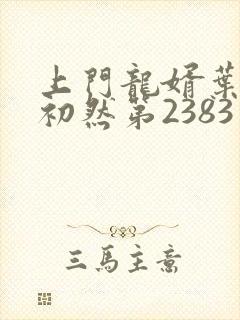 上門龍婿葉
初然第2383
三馬主意